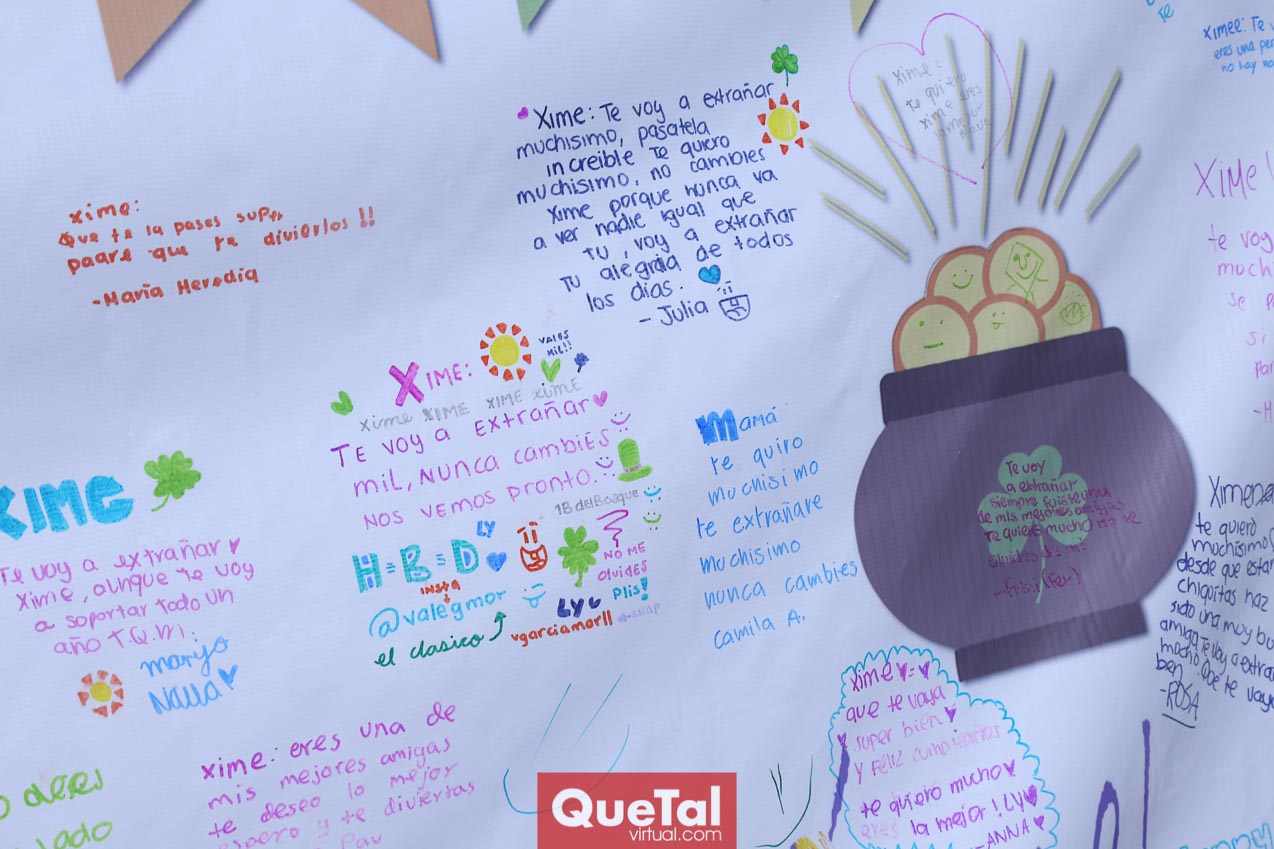 Ximee: Te v
eres una per
no hay na
xime:
te quiero
xime eres
la mejor
Xime: Te voy a extrañar
muchisimo, pasatela
increible te quiero
muchisimo, no cambies
xime porque nunca va
a ver nadie igual que
Tu, voy a extrañar
Tu alegria de todos
los dias.
- Julia
xime:
Que te la pases super
que te
-María Heredia
XIME
te voy
much
se p
si
par
-H
XIME:
VALES
MIL!!
xime XIME XIME xime
TE VOY a EXTRAÑAR
MIL, NUNCA CAMBIES
NOS VEMOS PRONTO.
1B del Bosque
H=B=D LY
NO ME
OLVIDES
Plis!
INSTA
@valegmor
LY
el clasico
vgarciamorll
SNAP
Mamá:
te quiro
muchisimo
te extrañare
muchisimo
nunca cambies
camila A.
Te voy
a extrañar
siempre fuiste una
de mis mejores amigas
te quiero mucho no te
olvides de mi
XIME
Te voy a extrañar
Xime, aunque te voy
a soportar todo un
año T.Q.M.
marijo
Nava
te quiero
muchisimo
desde que estan
chiquitas haz
sido una muy bu
amiga Te voy a extra
mucho. Que te vaya
ben
-ROSA
xime: eres una de
mis mejores amigas
te deseo lo mejor
espero y te diviertas
Pau
dejes
lado
Xime =
que te vaya
super bien
y feliz cumpleaños
te quiero mucho
eres la mejor! LY
-ANNA
QueTal
virtual.com